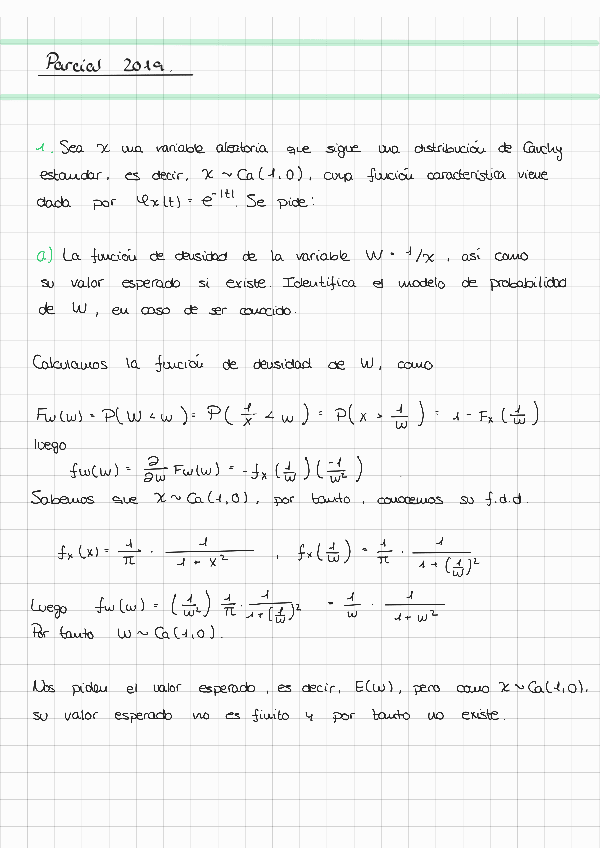 Parcial 2019.
1. Sea x una variable aleatoria que sigue una distribución de Cauchy
estandar, es decir, x ~ Ca(1,0), cuya función característica viene
dada por φx(t) = e^-|t|. Se pide:
a) La función de densidad de la variable W = 1/x, así como
su valor esperado si existe. Identifica el modelo de probabilidad
de W, en caso de ser conocido.
Calculamos la función de densidad de W, como
Fw(w) = P(W < w) = P(1/x < w) = P(x > 1/w) = 1 - Fx(1/w)
luego
fw(w) = ∂/∂w Fw(w) = -fx(1/w)(-1/w²)
Sabemos que x ~ Ca(1,0), por tanto, conocemos su f.d.d.
fx(x) = 1/π · 1/(1 + x²) , fx(1/w) = 1/π · 1/(1+(1/w)²)
Luego fw(w) = (1/w²) 1/π · 1/(1+(1/w)²) = 1/w · 1/(1+w²)
Por tanto W ~ Ca(1,0).
Nos piden el valor esperado, es decir, E(w), pero como x ~ Ca(1,0),
su valor esperado no es finito y por tanto no existe.